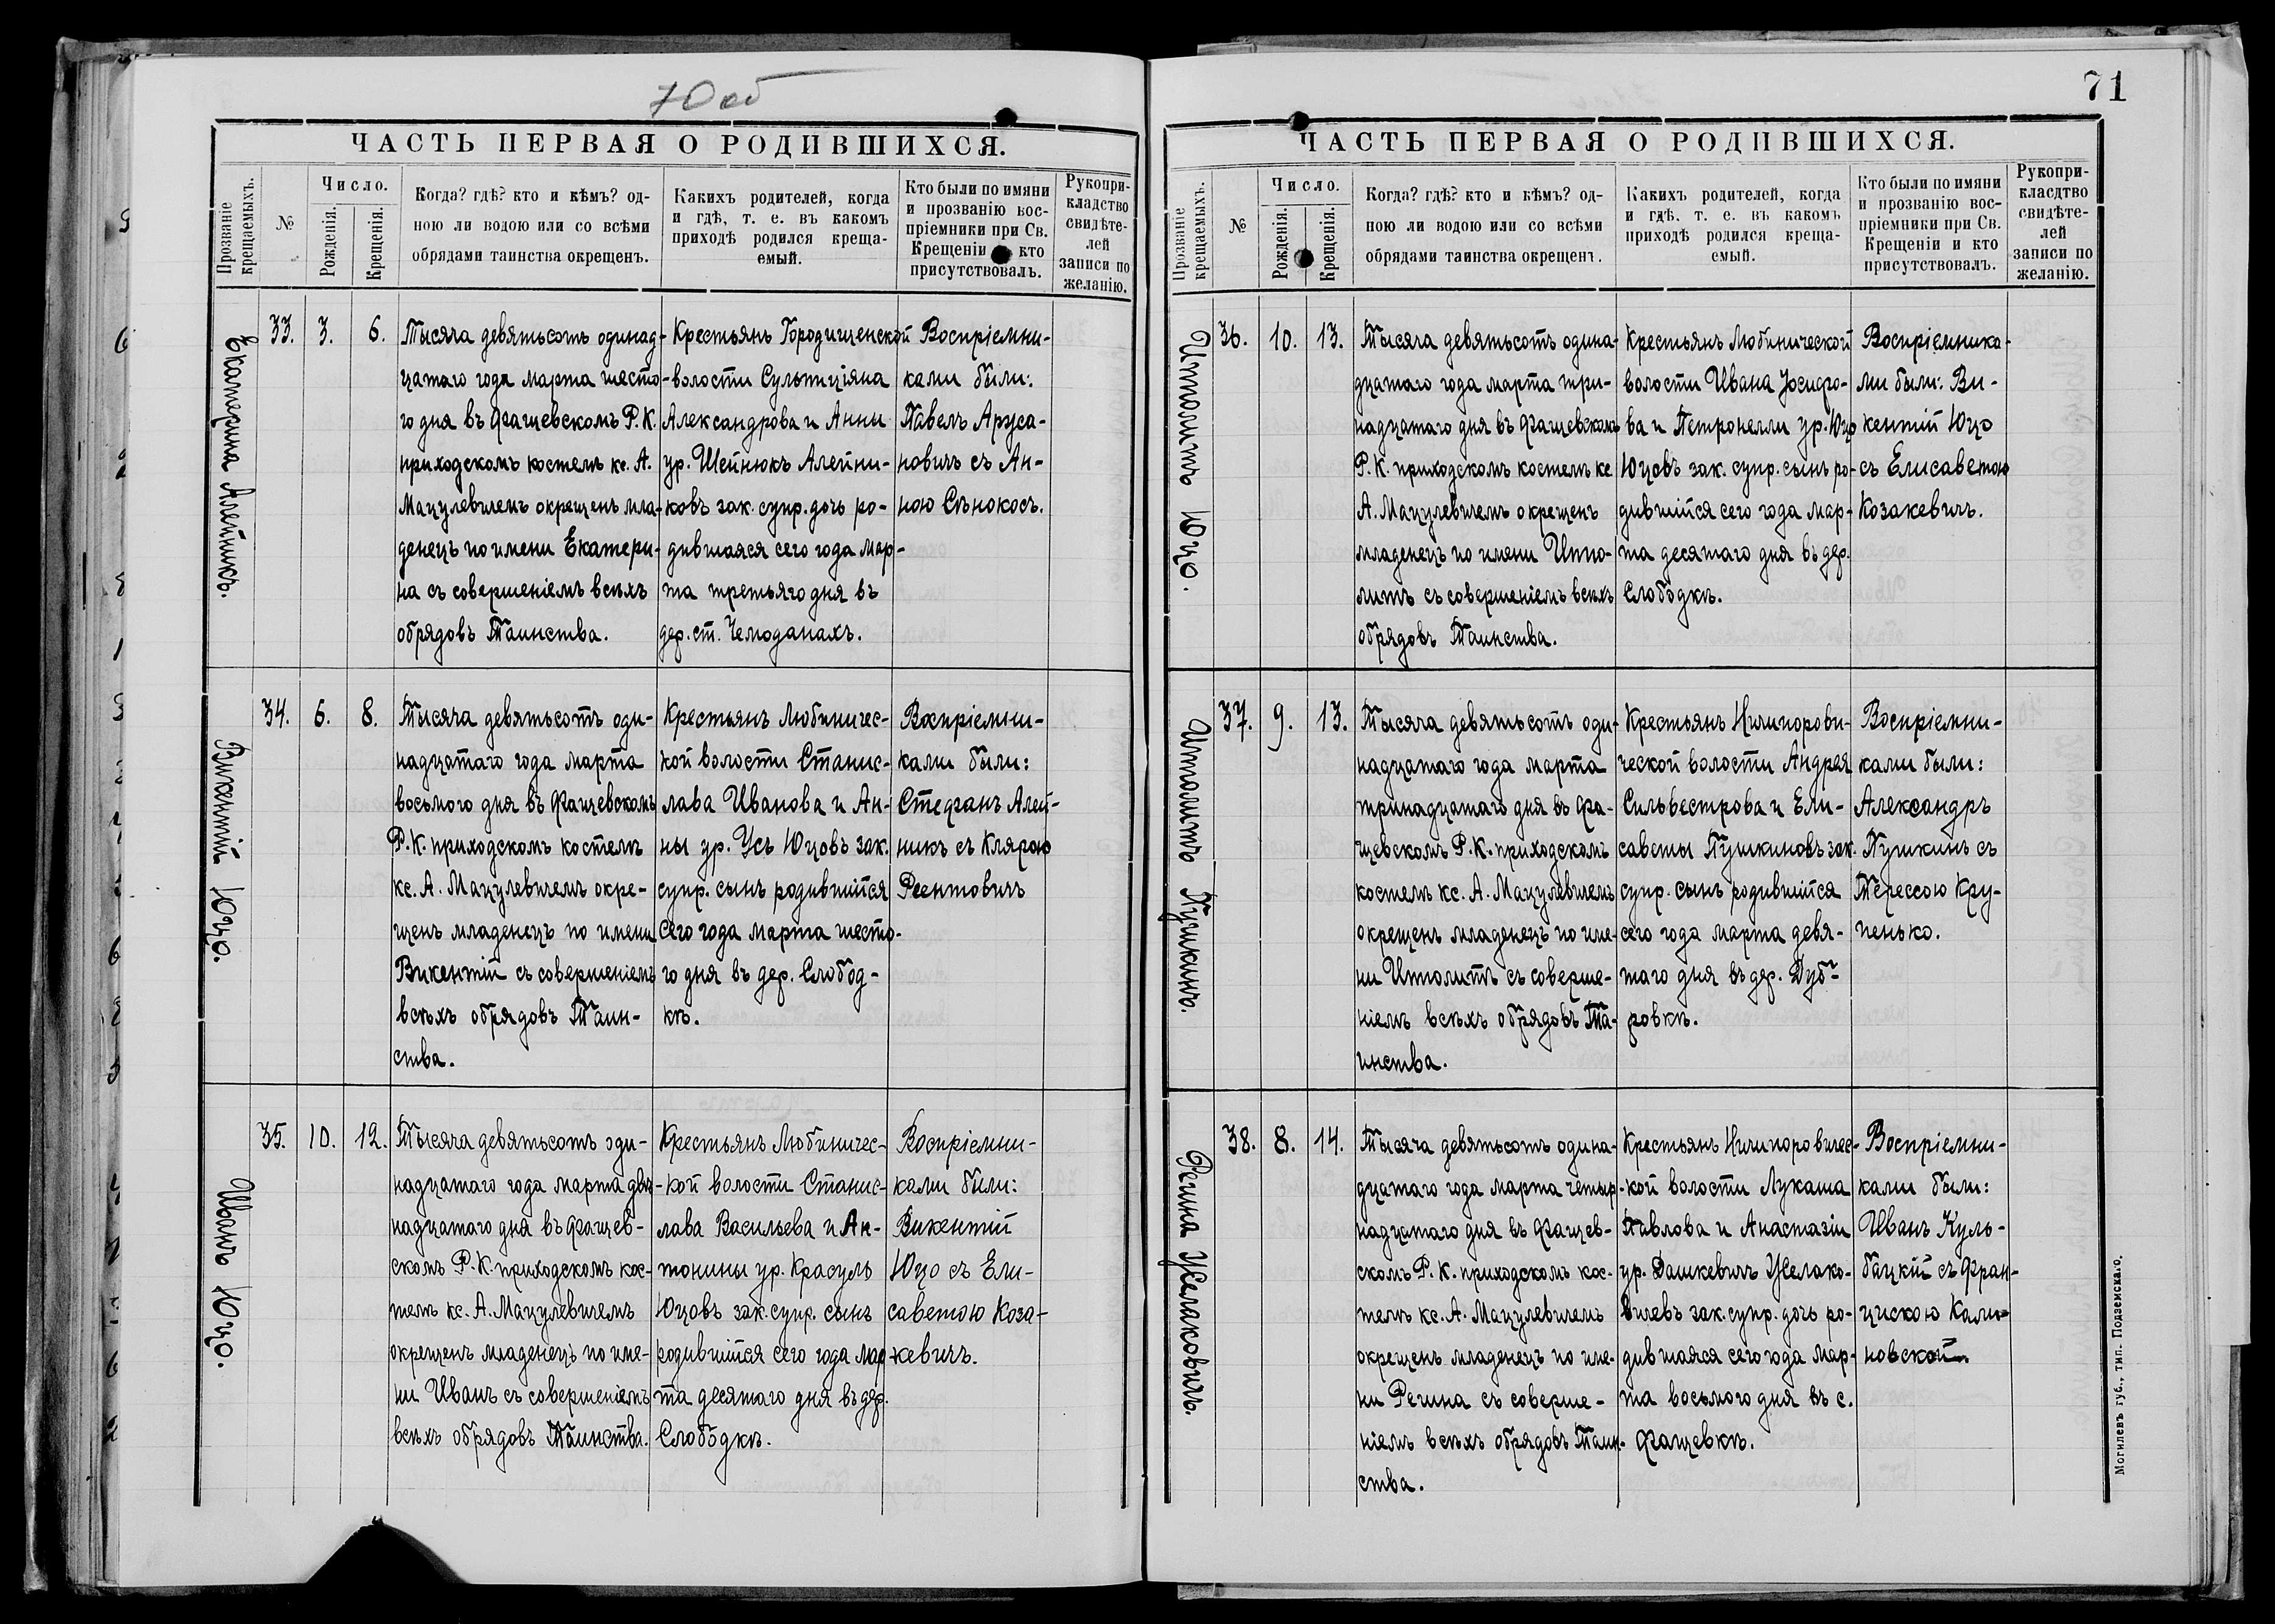 70 об
ЧАСТЬ ПЕРВАЯ О РОДИВШИХСЯ.
Прозваніе крещаемыхъ.
№
Число.
Рожденія.
Крещенія.
Когда? гдѣ? кто и кѣмъ? од-
ною ли водою или со всѣми
обрядами таинства окрещенъ.
Какихъ родителей, когда
и гдѣ, т. е. въ какомъ
приходѣ родился креща-
емый.
Кто были по имяни
и прозванію вос-
пріемники при Св.
Крещеніи кто
присутствовалъ.
Рукопри-
кладство
свидѣте-
лей
записи по
желанію.
Екатерина Алейникъ.
33.
3.
6.
Тысяча девятьсотъ одинад-
цатаго года марта шесто-
го дня въ Фащевскомъ Р. К.
приходскомъ костелѣ кс. А.
Мацулевичемъ окрещенъ мла-
денецъ по имени Екатери-
на съ совершеніемъ всѣхъ
обрядовъ Таинства.
Крестьянъ Городищенской
волости Сульпиціяна
Александрова и Анны
ур. Шейнюкъ Алейни-
ковъ зак. супр. дочь ро-
дившаяся сего года мар-
та третьяго дня въ
дер. ст. Чемоданахъ.
Воспріемни-
ками были:
Павелъ Аруса-
новичъ съ Ан-
ною Сѣнокосъ.
Викентій Юцо.
34.
6.
8.
Тысяча девятьсотъ оди-
надцатаго года марта
восьмого дня въ Фащевскомъ
Р. К. приходскомъ костелѣ
кс. А. Мацулевичемъ окре-
щенъ младенецъ по имени
Викентій съ совершеніемъ
всѣхъ обрядовъ Таин-
ства.
Крестьянъ Любиничес-
кой волости Станис-
лава Иванова и Ан-
ны ур. Усъ Юцовъ зак.
супр. сынъ родившійся
сего года марта шесто-
го дня въ дер. Слобод-
кѣ.
Воспріемни-
ками были:
Стефанъ Алей-
никъ съ Клярою
Реентовичъ
Иванъ Юцо.
35.
10.
12.
Тысяча девятьсотъ оди-
надцатаго года марта двѣ-
надцатаго дня въ Фащев-
скомъ Р. К. приходскомъ кос-
телѣ кс. А. Мацулевичемъ
окрещенъ младенецъ по име-
ни Иванъ съ совершеніемъ
всѣхъ обрядовъ Таинства.
Крестьянъ Любиничес-
кой волости Станис-
лава Васильева и Ан-
тонины ур. Красуль
Юцовъ зак. супр. сынъ
родившійся сего года мар-
та десятаго дня въ дер.
Слободкѣ.
Воспріемни-
ками были:
Викентій
Юцо съ Ели-
саветою Коза-
кевичъ.
71
ЧАСТЬ ПЕРВАЯ О РОДИВШИХСЯ.
Прозваніе крещаемыхъ.
№
Число.
Рожденія.
Крещенія.
Когда? гдѣ? кто и кѣмъ? од-
ною ли водою или со всѣми
обрядами таинства окрещенъ.
Какихъ родителей, когда
и гдѣ, т. е. въ какомъ
приходѣ родился креща-
емый.
Кто были по имяни
и прозванію вос-
пріемники при Св.
Крещеніи и кто
присутствовалъ.
Рукопри-
класдтво
свидѣте-
лей
записи по
желанію.
Ипполитъ Юцо.
36.
10.
13.
Тысяча девятьсотъ одина-
дцатаго года марта три-
надцатаго дня въ Фащевскомъ
Р. К. приходскомъ костелѣ кс
А. Мацулевичемъ окрещенъ
младенецъ по имени Иппо-
литъ съ совершеніемъ всѣхъ
обрядовъ Таинства.
Крестьянъ Любинической
волости Ивана Іосифо-
ва и Петронелли ур. Юцо
Юцовъ зак. супр. сынъ ро-
дившійся сего года мар-
та десятаго дня въ дер.
Слободкѣ.
Воспріемника-
ми были: Ви-
кентій Юцо
съ Елисаветою
Козакевичъ.
Ипполитъ Пушкинъ.
37.
9.
13.
Тысяча девятьсотъ оди-
надцатаго года марта
тринадцатаго дня въ Фа-
щевскомъ Р. К. приходскомъ
костелѣ кс. А. Мацулевичемъ
окрещенъ младенецъ по име-
ни Ипполитъ съ соверше-
ніемъ всѣхъ обрядовъ Та-
инства.
Крестьянъ Ничипорови-
ческой волости Андрея
Сильвестрова и Ели-
саветы Пушкиновъ зак.
супр. сынъ родившійся
сего года марта девя-
таго дня въ дер. Дуб-
ровкѣ.
Воспріемни-
ками были:
Александръ
Пушкинъ съ
Терессою Кру-
пенько.
Регина Уселаковичъ.
38.
8.
14.
Тысяча девятьсотъ одина-
дцатаго года марта четыр-
надцатаго дня въ Фащев-
скомъ Р. К. приходскомъ кос-
телѣ кс. А. Мацулевичемъ
окрещенъ младенецъ по име-
ни Регина съ соверше-
ніемъ всѣхъ обрядовъ Таин-
ства.
Крестьянъ Ничипоровичес-
кой волости Лукаша
Павлова и Анастазіи
ур. Дашкевичъ Уселако-
вичевъ зак. супр. дочь ро-
дившаяся сего года мар-
та восьмого дня въ с.
Фащевкѣ.
Воспріемни-
ками были:
Иванъ Куль-
бацкій съ Фран-
цискою Кали-
новской
Могилевъ губ., тип. Подземскаго.